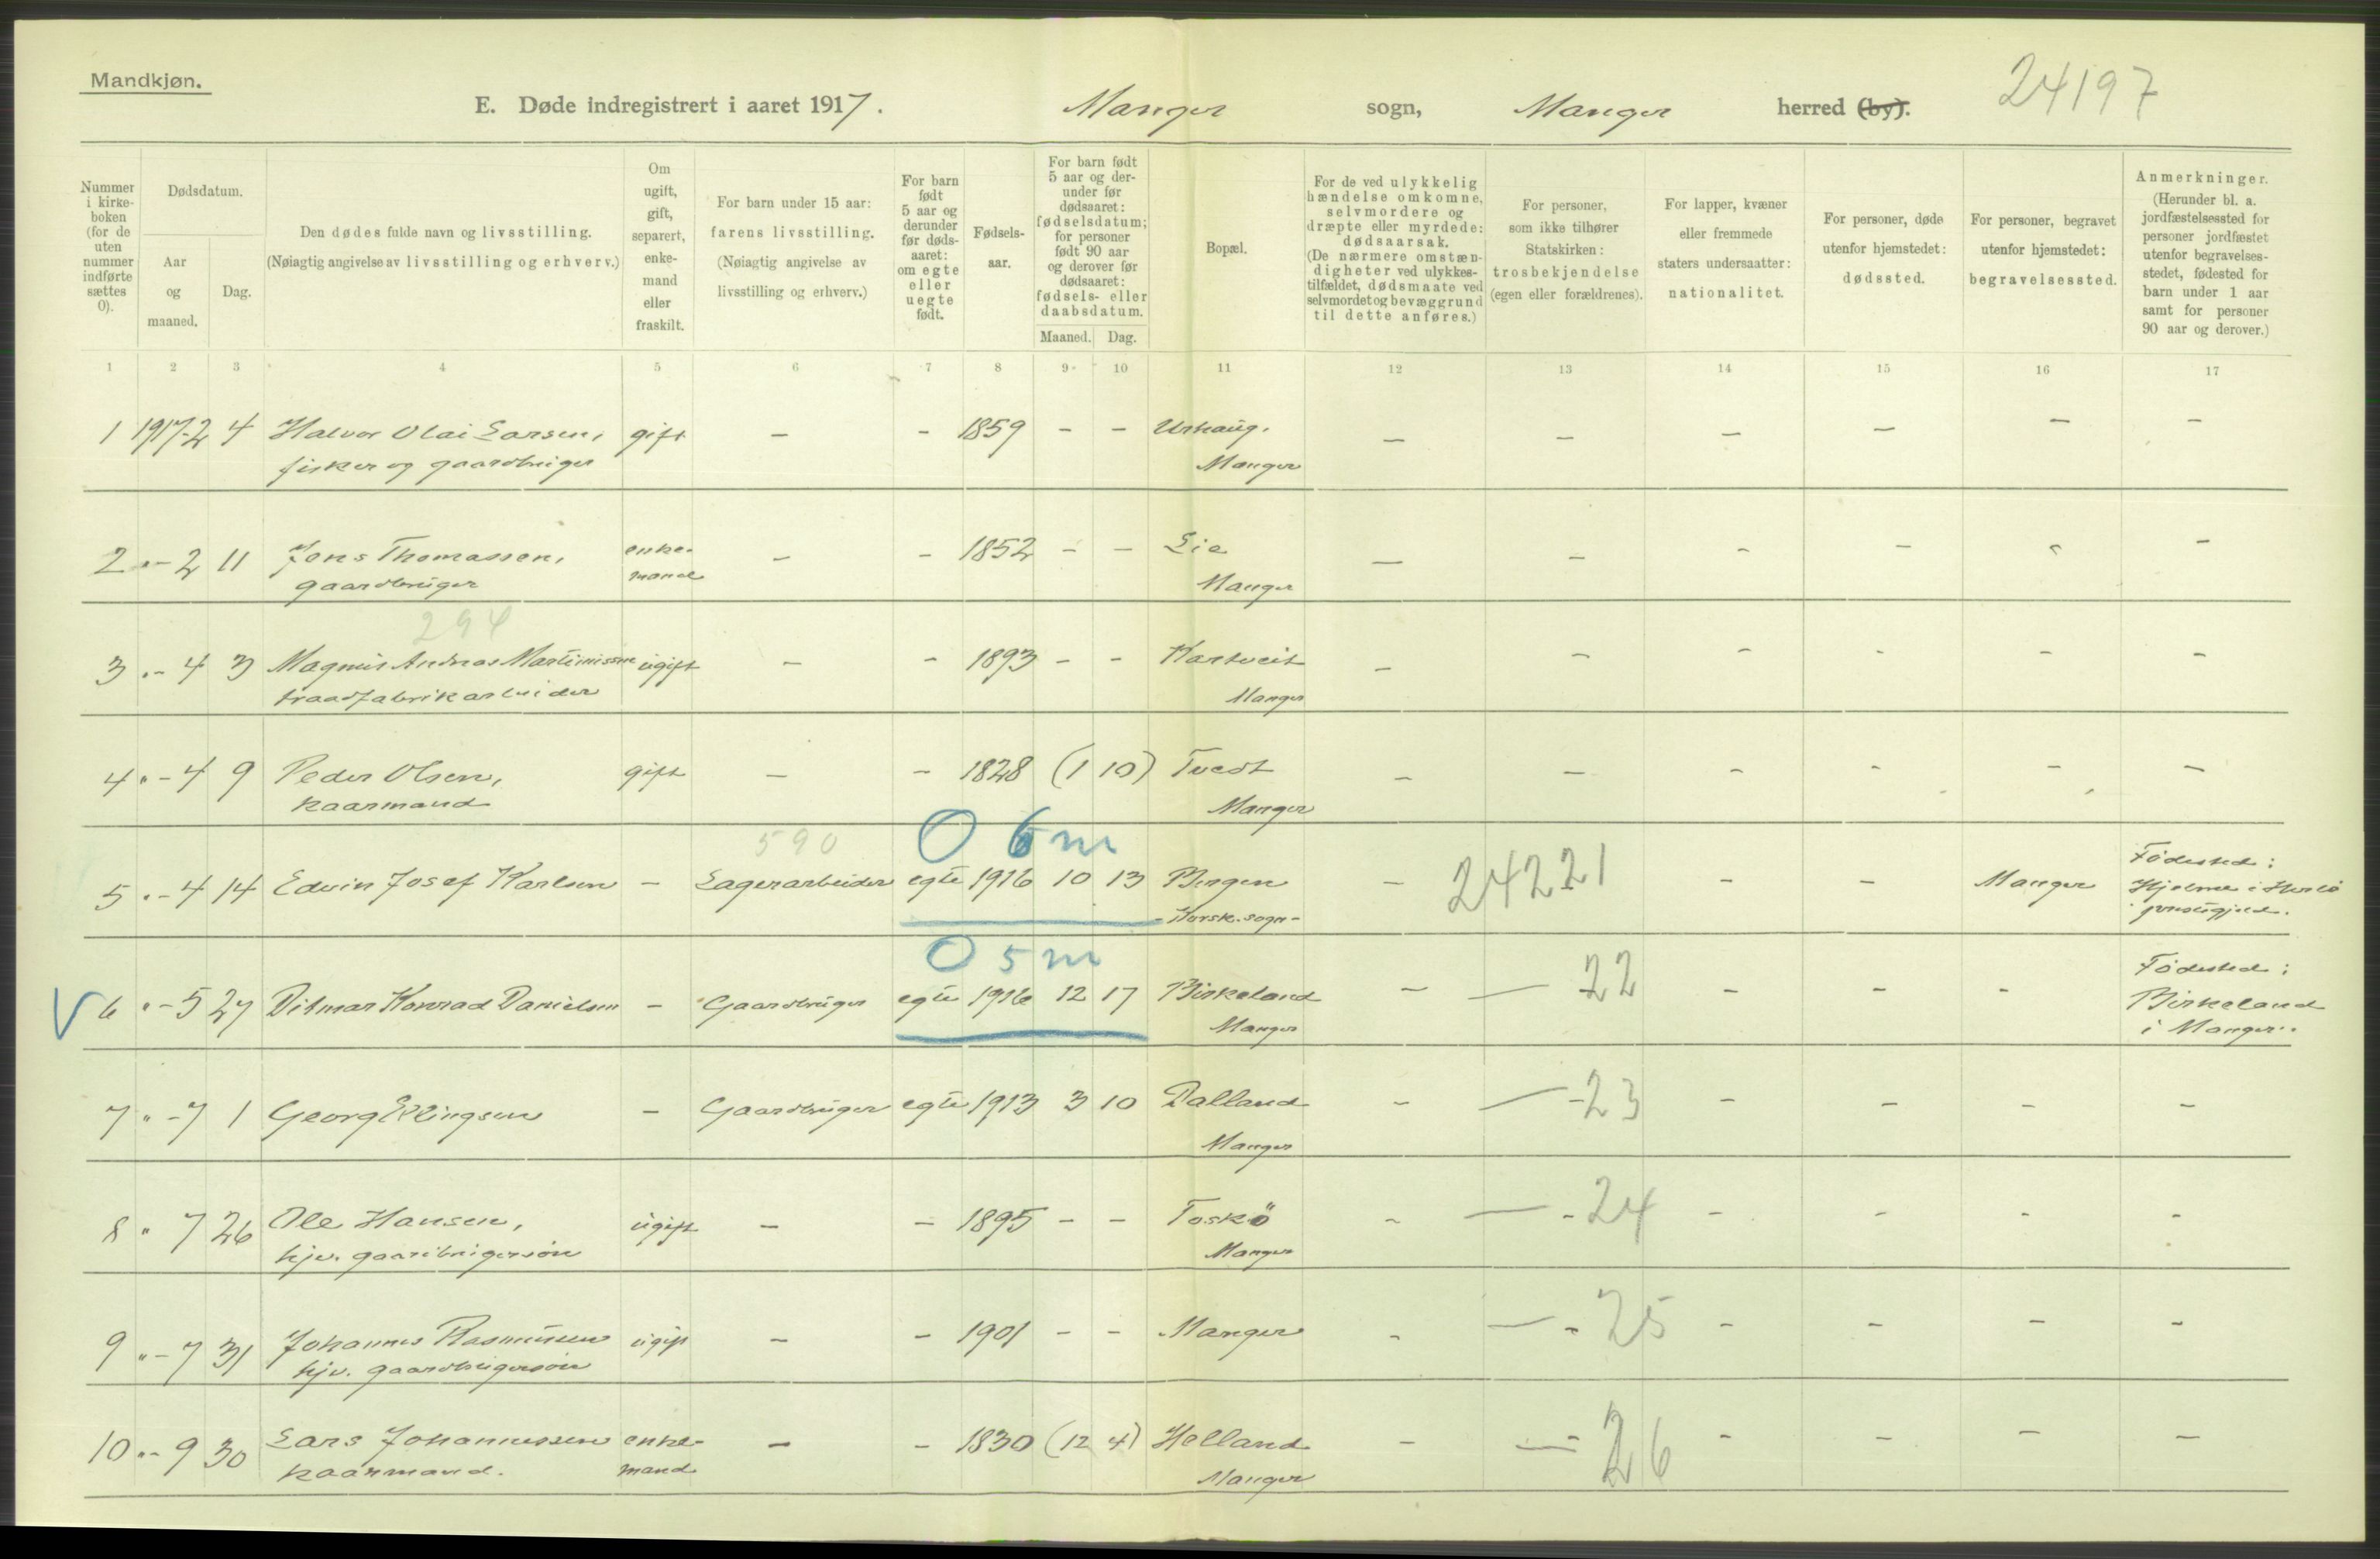 Mandkjøn.
E. Døde indregistrert i aaret 1917. Manger sogn, Manger herred (by). 24197
Nummer i kirkeboken (for de uten nummer indførte sættes 0).
Dødsdatum.
Aar og maaned.
Dag.
Den dødes fulde navn og livsstilling.
(Nøiagtig angivelse av livsstilling og erhverv.)
Om ugift, gift, separert, enkemand eller fraskilt.
For barn under 15 aar: farens livsstilling.
(Nøiagtig angivelse av livsstilling og erhverv.)
For barn født 5 aar og derunder før dødsaaret: om egte eller uegte født.
Fødselsaar.
For barn født 5 aar og derunder før dødsaaret: fødselsdatum; for personer født 90 aar og derover før dødsaaret: fødsels- eller daabsdatum.
Maaned. Dag.
Bopæl.
For de ved ulykkelig hændelse omkomne, selvmordere og dræpte eller myrdede: dødsaarsak.
(De nærmere omstændigheter ved ulykkestilfældet, dødsmaate ved selvmordet og bevæggrund til dette anføres.)
For personer, som ikke tilhører Statskirken: trosbekjendelse (egen eller forældrenes).
For lapper, kvæner eller fremmede staters undersaatter: nationalitet.
For personer, døde utenfor hjemstedet: dødssted.
For personer, begravet utenfor hjemstedet: begravelsessted.
Anmerkninger.
(Herunder bl. a. jordfæstelsessted for personer jordfæstet utenfor begravelsesstedet, fødested for barn under 1 aar samt for personer 90 aar og derover.)
1 2 3 4 5 6 7 8 9 10 11 12 13 14 15 16 17
1 1917-2 4 Halvor Olai Larsen, gift – – 1859 – – Urhaug. – – – – – –
fisker og gaardbruger Manger
2 " – 2 11 Jens Thomassen, enke- – – 1852 – – Lie – – – – – –
gaardbruger mand Manger
294
3 " – 4 3 Magnus Andreas Martinussen ugift – – 1893 – – Kartveit – – – – – –
traadfabrikarbeider Manger
4 " – 4 9 Peder Olsen, gift – – 1828 (1 10) Tvedt – – – – – –
kaarmand Manger
590 0 6 m
5 " – 4 14 Edvin Josef Karlsen – Lagerarbeider egte 1916 10 13 Bergen – 24221 – – Manger Födested:
Hjelme i Herlö
- Korsk. sogn - prestegjeld.
0 5 m
V 6 " – 5 27 Ditmar Konrad Danielsen – Gaardbruger egte 1916 12 17 Birkeland – — 22 – – – Födested:
Birkeland
Manger i Manger.
7 " – 7 1 Georg Ellingsen – Gaardbruger egte 1913 3 10 Dalland – — 23 – – – –
Manger
8 " 7 26 Ole Hansen, ugift – – 1895 – – Toskö – — 24 – – – –
hjv. gaardbrugersön Manger
9 " – 7 31 Johannes Rasmussen ugift – – 1901 – – Manger – — 25 – – – –
hjv. gaardbrugersön
10 " – 9 30 Lars Johannessen enke- – – 1830 (12 4) Helland – — 26 – – – –
kaarmand. mand Manger